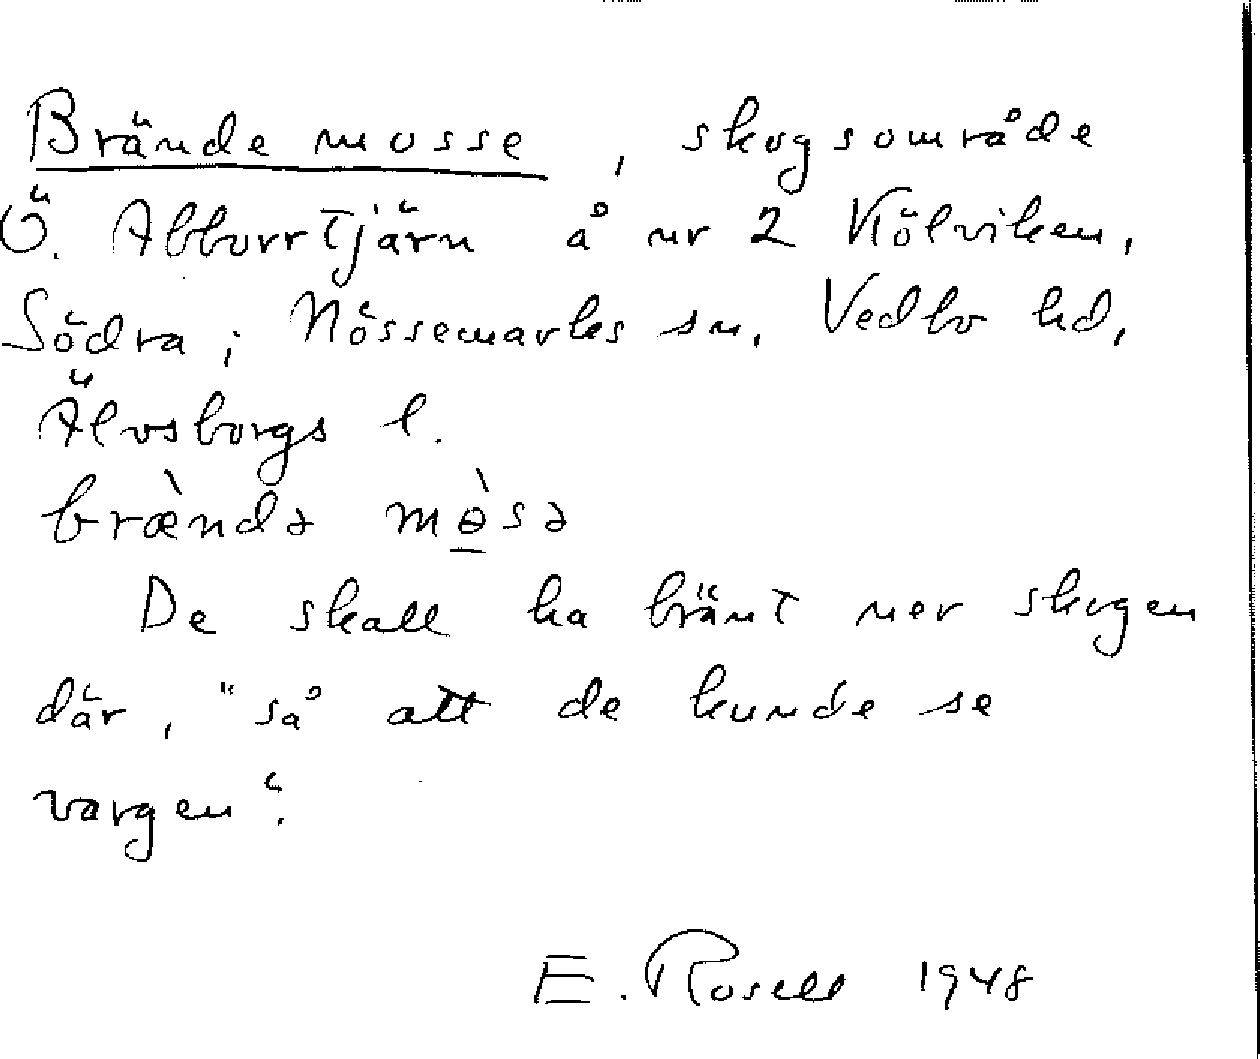 Brände mosse, skogsområde
Ö. Abborrtjärn å nr 2 Kölviken,
Södra; Nössemarks sn, Vedbo hd,
Älvsborgs l.
bræ̀ndə mɵ̠̀sə
De skall ha bränt ner skogen
där, "så att de kunde se
vargen".
E. Rosell 1948